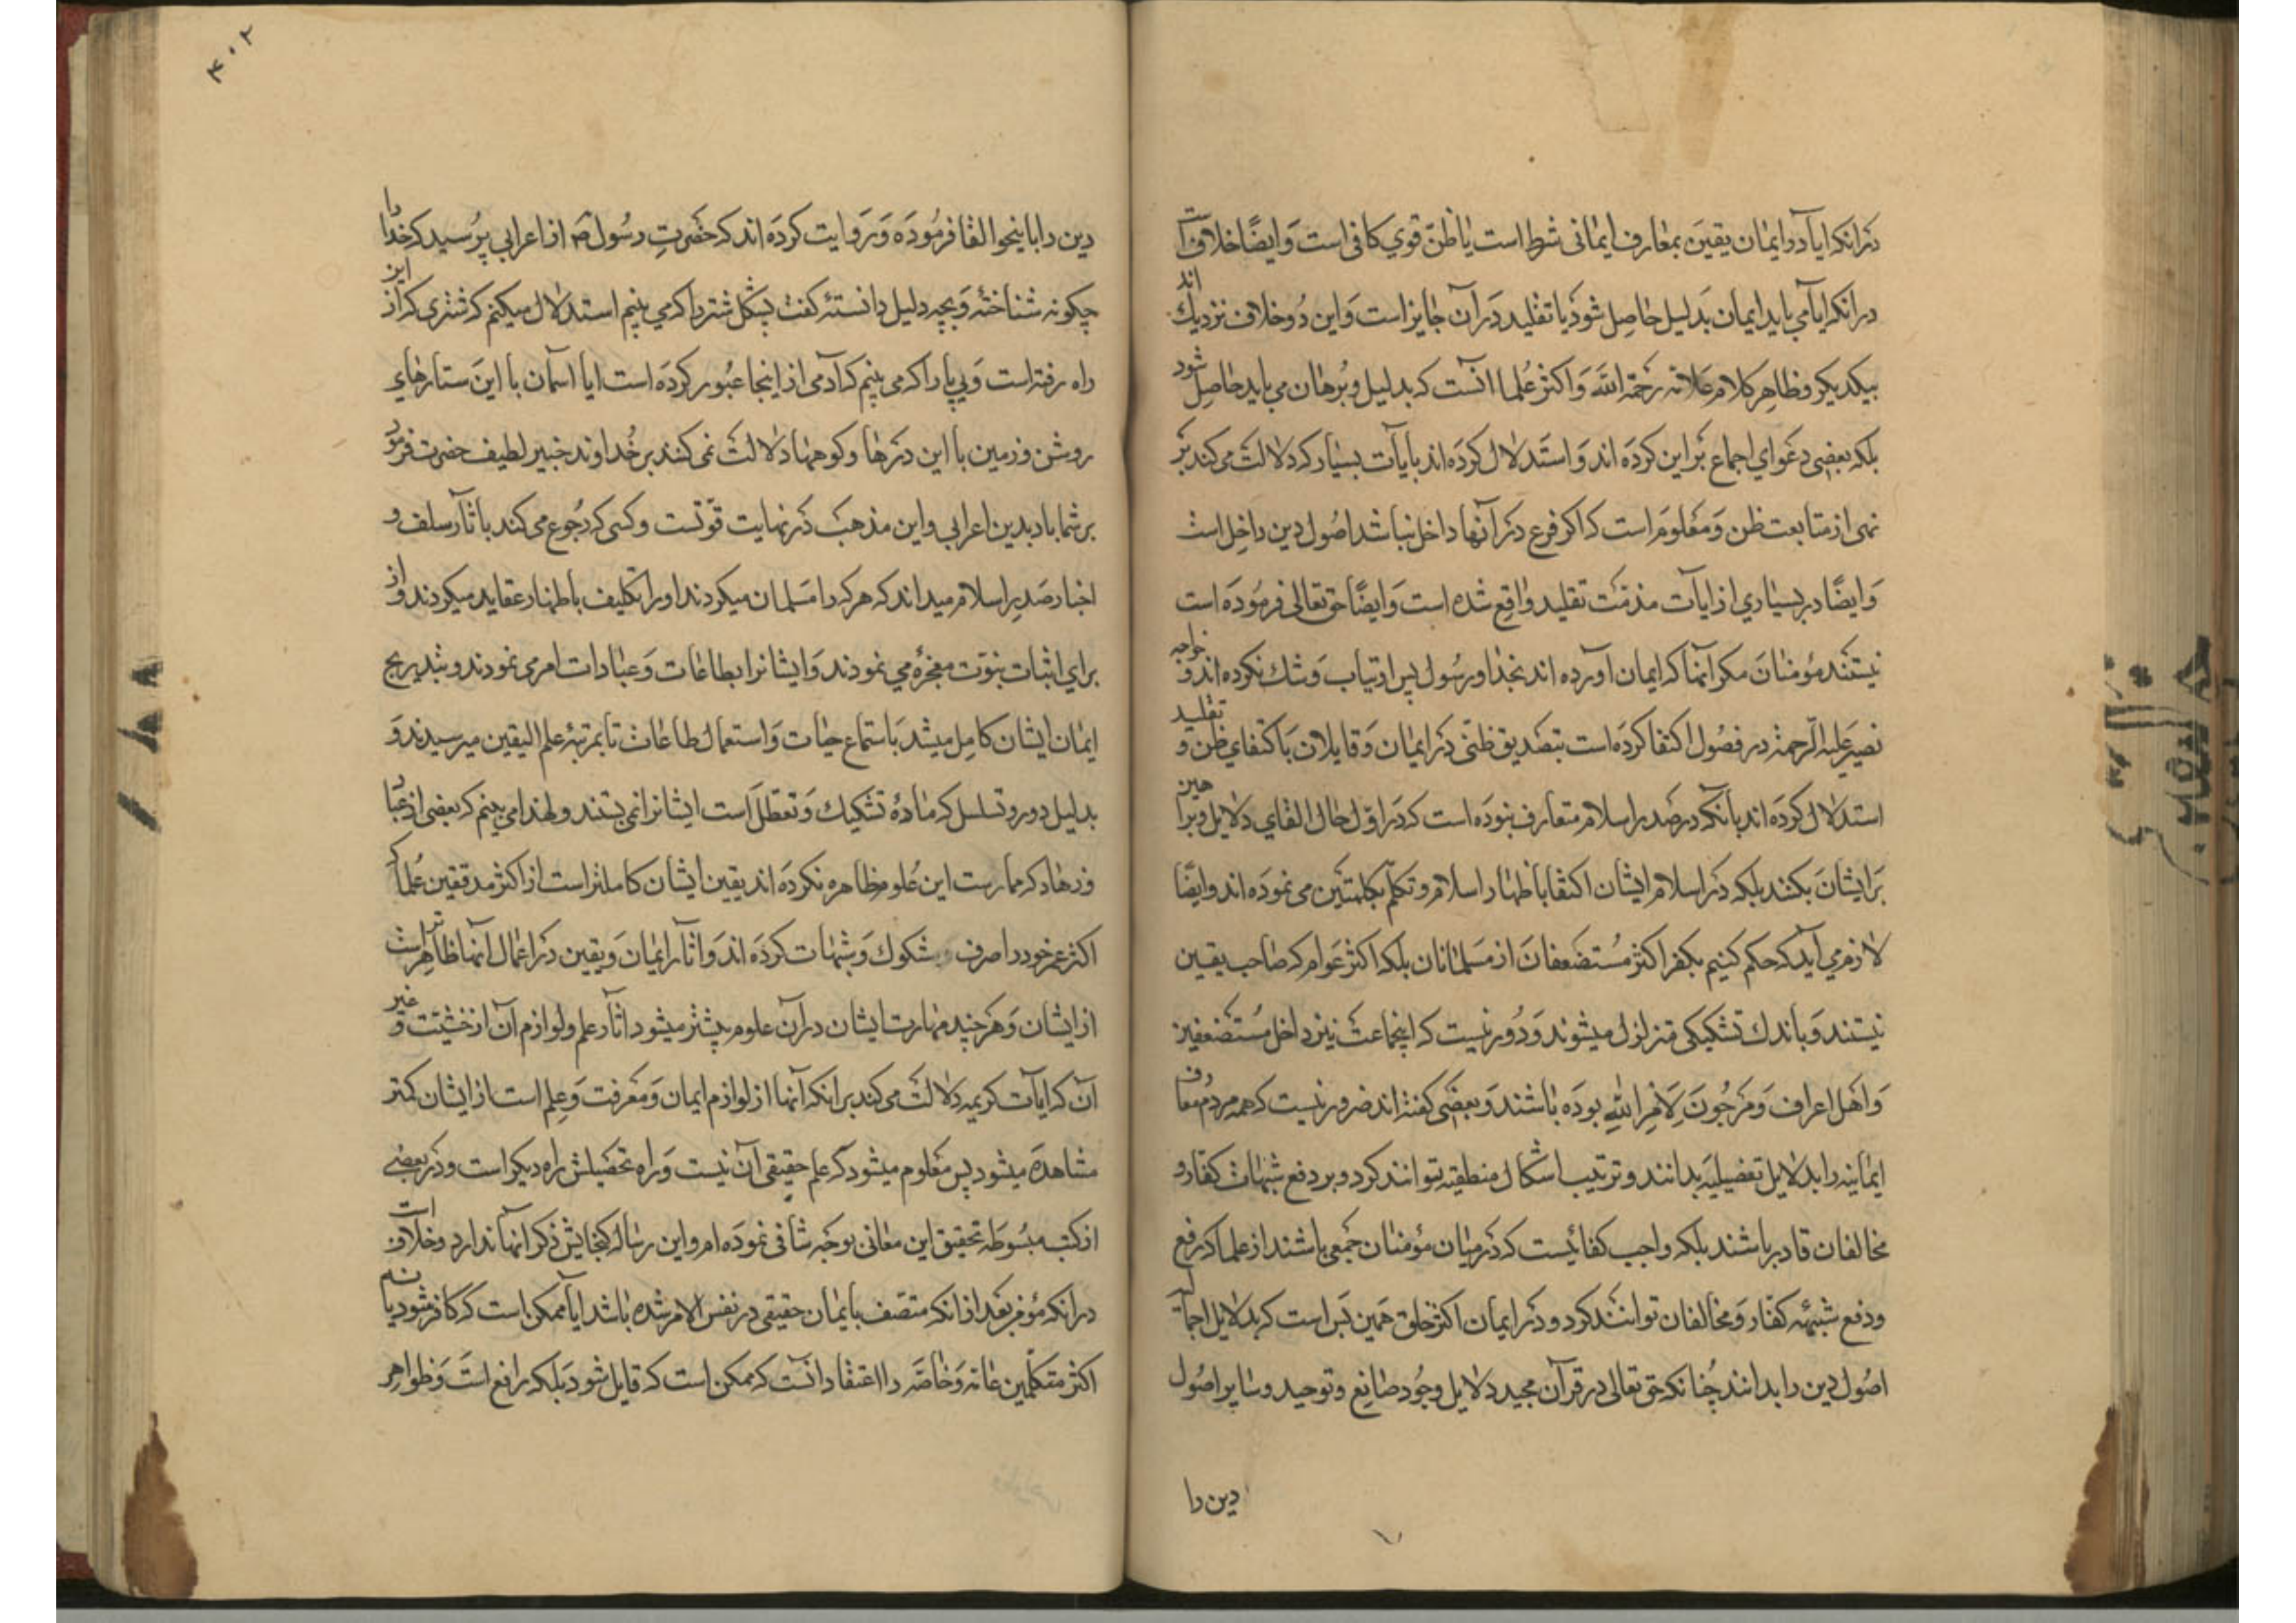 در آنکه ایا در ایمان یقین بمعارف ایمانی شرط است یا ظنّ قوی کافی است و ایضًا خلاف است
در آنکه ایا می باید ایمان بدلیل حاصل شود یا تقلید در آن جایز است و این دو خلاف نزدیک اند
بیکدیگر و ظاهر کلام علامه رحمة الله و اکثر علما آنست که بدلیل و برهان می باید حاصل شود
بلکه بعضی دعوای اجماع بر این کرده اند و استدلال کرده اند بآیات بسیار که دلالت می کند بر
نهی از متابعت ظن و معلوم است که اکر فرع در آنها داخل نباشد اصول دین داخل است
و ایضًا در بسیاری از ایات مذمّت تقلید واقع شده است و ایضًا حق تعالی فرموده است
نیستند مؤمنان مکر آنها که ایمان آورده اند بخدا و رسول پس ارتیاب و شک نکرده اند و خواجه
نصیر علیه الرّحمة در فصول اکتفا کرده است بتصدیق ظنّی در ایمان و قایلان باکتفای ظن و تقلید
استدلال کرده اند بآنکه در صدر اسلام متعارف نبوده است که در اوّل حال القای دلایل و براهین
بر ایشان بکنند بلکه در اسلام ایشان اکتفا باظهار اسلام و تکلّم بکلمتین می نموده اند و ایضًا
لازم می آید که حکم کنیم بکفر اکثر مستضعفان از مسلمانان بلکه اکثر عوام که صاحب یقین
نیستند و باندک تشکیکی متزلزل میشوند و دور نیست که اینجماعت نیز داخل مستضعفین
و اهل اعراف و مرجون لامر الله بوده باشند و بعضی کفته اند ضرور نیست که همه مردم معارف
ایمانیه را بدلایل تفصیلیه بدانند و ترتیب اشکال منطقیه توانند کرد و بر دفع شبهات کفار و
مخالفان قادر باشند بلکه واجب کفائیست که در میان مؤمنان جمعی باشند از علما که رفع
و دفع شبهه کفار و مخالفان توانند کرد و در ایمان اکثر خلق همین بس است که بدلایل اجمالیه
اصول دین را بدانند چنانکه حق تعالی در قرآن مجید دلایل وجود صانع و توحید و سایر اصول
دین را
۴۰۲
دین را باینحو القا فرموده و روایت کرده اند که حضرت رسول ص از اعرابی پرسید که خدا را
چکونه شناختۀ و بچه دلیل دانستۀ کفت پشکل شتر را که می بینم استدلال میکنم که شتری که از این
راه رفته است و پی پا را که می بینم که آدمی از اینجا عبور کرده است ایا اسمان با این ستارهای
روشن و زمین با این درها و کوهها دلالت نمی کنند بر خداوند خبیر لطیف حضرت فرمود
بر شما باد بدین اعرابی و این مذهب در نهایت قوّتست و کسی که رجوع می کند باثار سلف و
اخبار صدر اسلام میداند که هر که را مسلمان میکردند او را تکلیف باظهار عقاید میکردند و از
برای اثبات نبوّت معجزه می نمودند و ایشانرا بطاعات و عبادات امر می نمودند و بتدریج
ایمان ایشان کامل میشد باستماع حیات و استعمال طاعات تا بمرتبۀ علم الیقین میرسیدند و
بدلیل دور و تسلسل که مادۀ تشکیک و تعطل است ایشانرا نمی بستند و لهذا می بینم که بعضی از عباد
و زهاد که ممارست این علوم ظاهره نکرده اند یقین ایشان کاملتر است از اکثر مدققین علما که
اکثر عمر خود را صرف شکوک و شبهات کرده اند و اثار ایمان و یقین در اعمال آنها ظاهرتر است
از ایشان و هر چند مهارت ایشان در آن علوم بیشتر میشود اثار علم و لوازم آن از خشیّت و غیر
آن که ایات کریمه دلالت می کند بر انکه آنها از لوازم ایمان و معرفت و علم است از ایشان کمتر
مشاهده میشود پس معلوم میشود که علم حقیقی آن نیست و راه تحصیلش راه دیکر است و در بعضی
از کتب مبسوطه تحقیق این معانی بوجه شافی نموده ام و این رساله کنجایش ذکر انها ندارد و خلاف است
در انکه مؤمن بعد از انکه متصف بایمان حقیقی در نفس الامر شده باشد ایا ممکن است که کافر شود یا نه
اکثر متکلّمین عامّه و خاصّه را اعتقاد انست که ممکن است که قایل شود بلکه رافع است و ظواهر